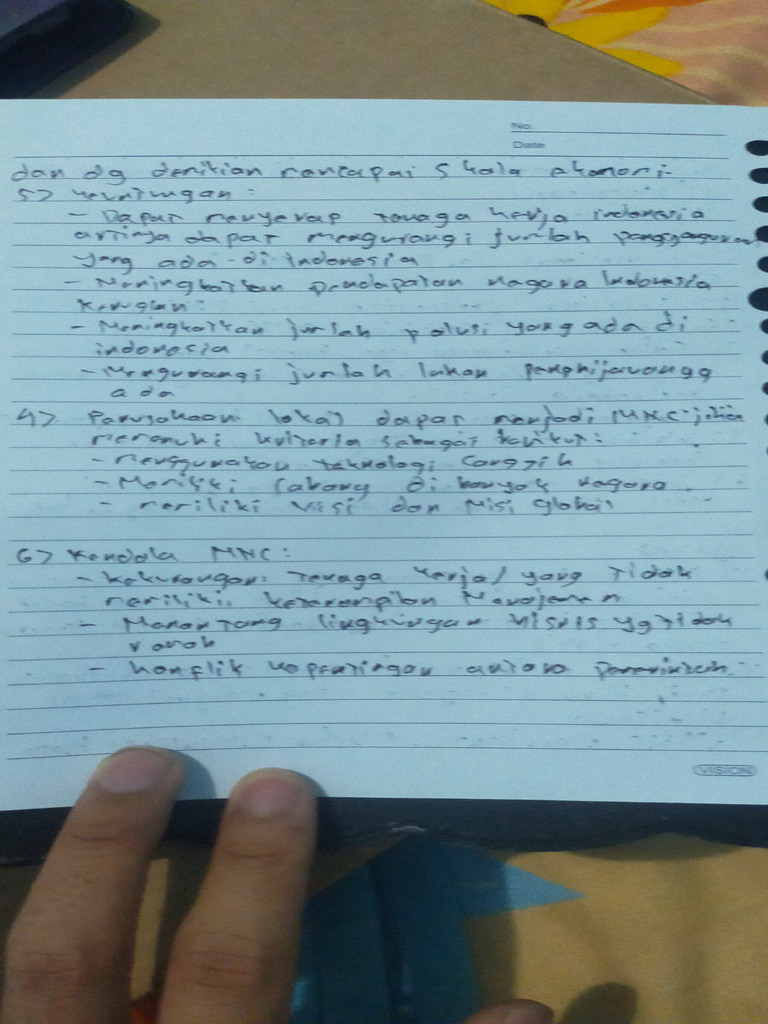 No.
Date
dan dg demikian mencapai skala ekonomi.
5) keuntungan :
- Dapat menyerap tenaga kerja indonesia
artinya dapat mengurangi jumlah pengangguran
yang ada di Indonesia
- Meningkatkan pendapatan negara Indonesia
Kerugian :
- Meningkatkan jumlah polusi yang ada di
indonesia
- Mengurangi jumlah lahan penghijauan yg
ada
4) Perusahaan lokal dapat menjadi MNC jika
memenuhi kriteria sebagai berikut :
- menggunakan teknologi canggih
- Memiliki cabang di banyak negara
- memiliki visi dan misi global
6) Kendala MNC :
- kekurangan tenaga kerja yang tidak
memiliki keterampilan Manajemen
- Menantang lingkungan bisnis yg tidak
ramah
- konflik kepentingan antara pemerintah
VISION